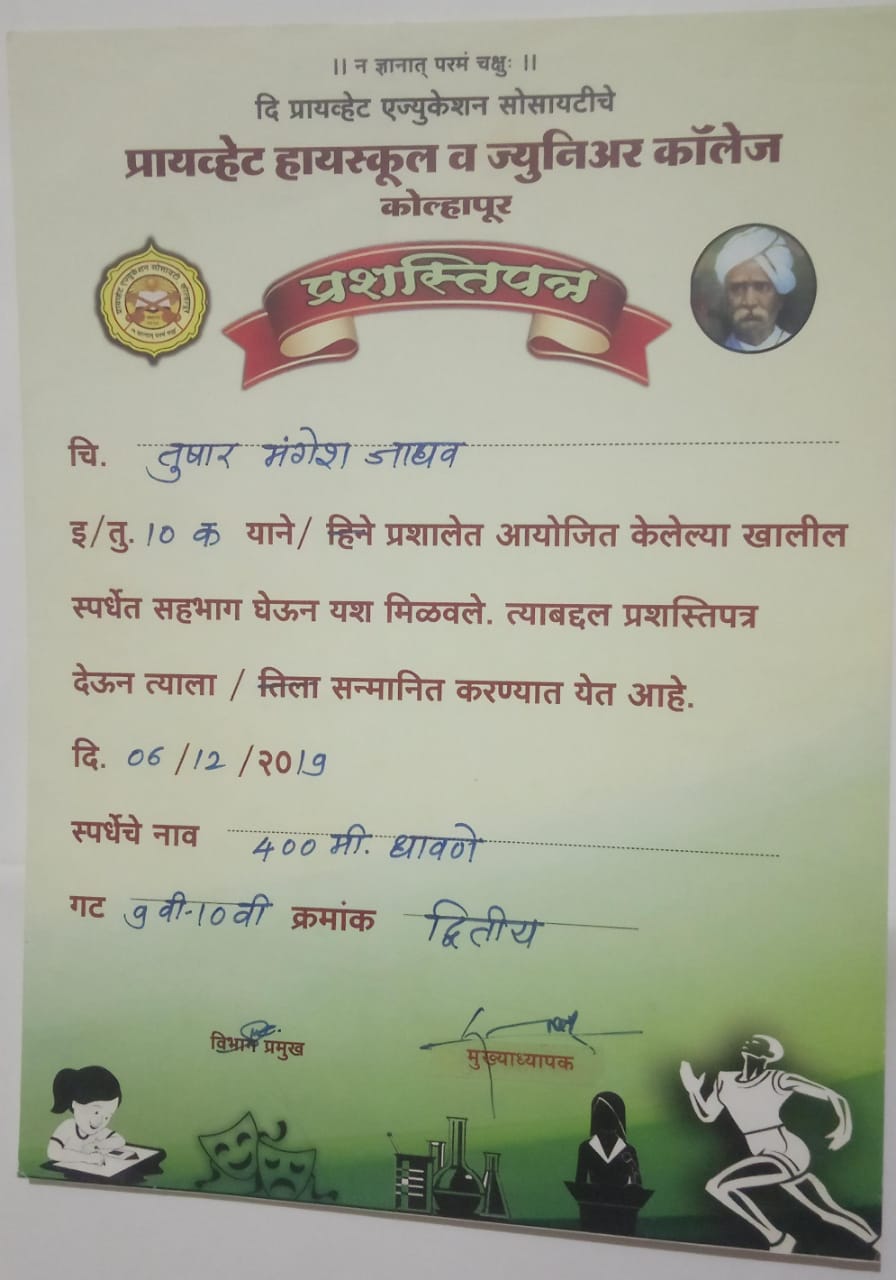 ।। न ज्ञानात् परमं चक्षुः ।।
दि प्रायव्हेट एज्युकेशन सोसायटीचे
प्रायव्हेट हायस्कूल व ज्युनिअर कॉलेज
कोल्हापूर
प्रशस्तिपत्र
चि. तुषार मंगेश जाधव
इ/तु. 10 क याने/ हिने प्रशालेत आयोजित केलेल्या खालील
स्पर्धेत सहभाग घेऊन यश मिळवले. त्याबद्दल प्रशस्तिपत्र
देऊन त्याला / तिला सन्मानित करण्यात येत आहे.
दि. 06 /12 /२019
स्पर्धेचे नाव 400 मी. धावणे
गट 9 वी-10 वी क्रमांक द्वितीय
विभाग प्रमुख
मुख्याध्यापक